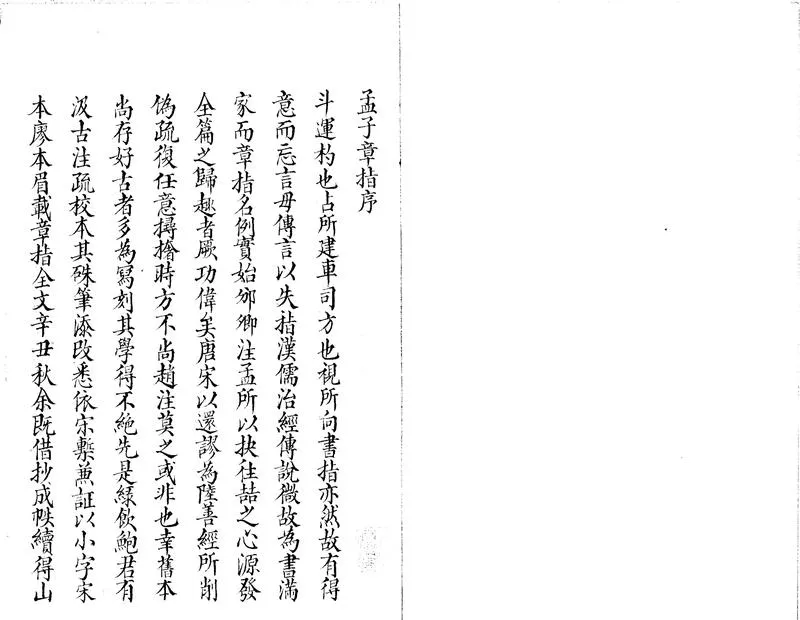 孟子章指序
斗運杓也占所建車司方也視所向書指亦然故有得
意而忘言毋傳言以失指漢儒治經傳說微故為書滿
家而章指名例實始邠卿注孟所以抉往喆之心源發
全篇之歸趣者厥功偉矣唐宋以還謬為陸善經所削
偽疏復任意撏撦時方不尚趙注莫之或非也幸舊本
尚存好古者多為寫刻其學得不絕先是綠飲鮑君有
汲古注疏校本其硃筆添改悉依宋槧兼証以小字宋
本廖本眉載章指全文辛丑秋余既借抄成帙續得山